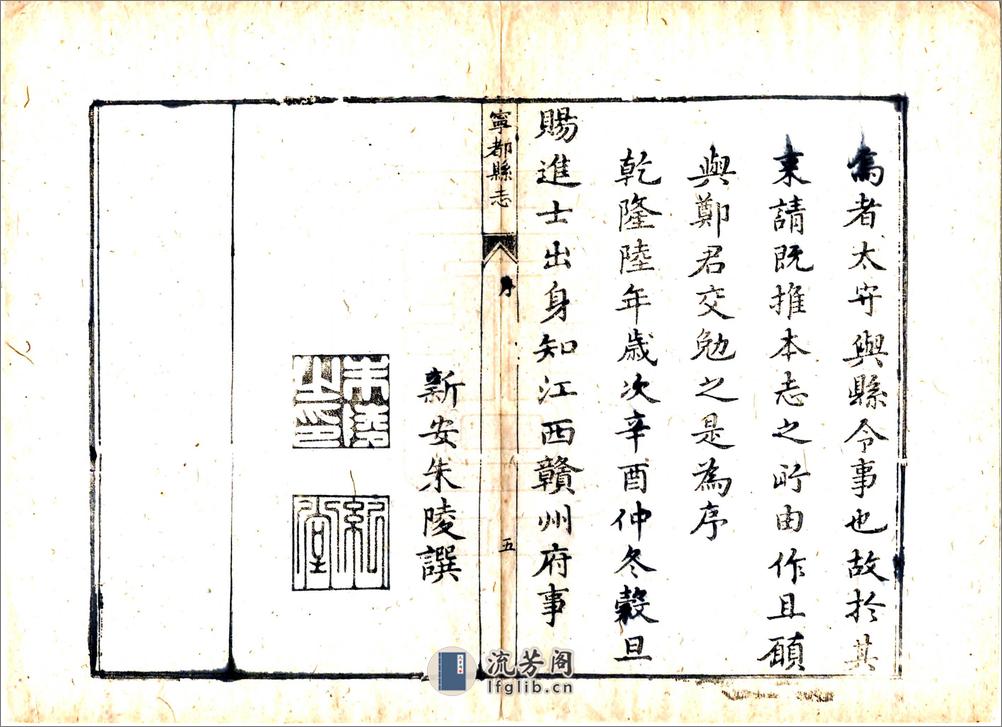 為者太守與縣令事也故於其
來請既推本志之所由作且願
與鄭君交勉之是為序
乾隆陸年歲次辛酉仲冬穀旦
賜進士出身知江西贛州府事
寧都縣志
序
五
新安朱陵譔
朱陵之印
流芳阁
lfglib.cn